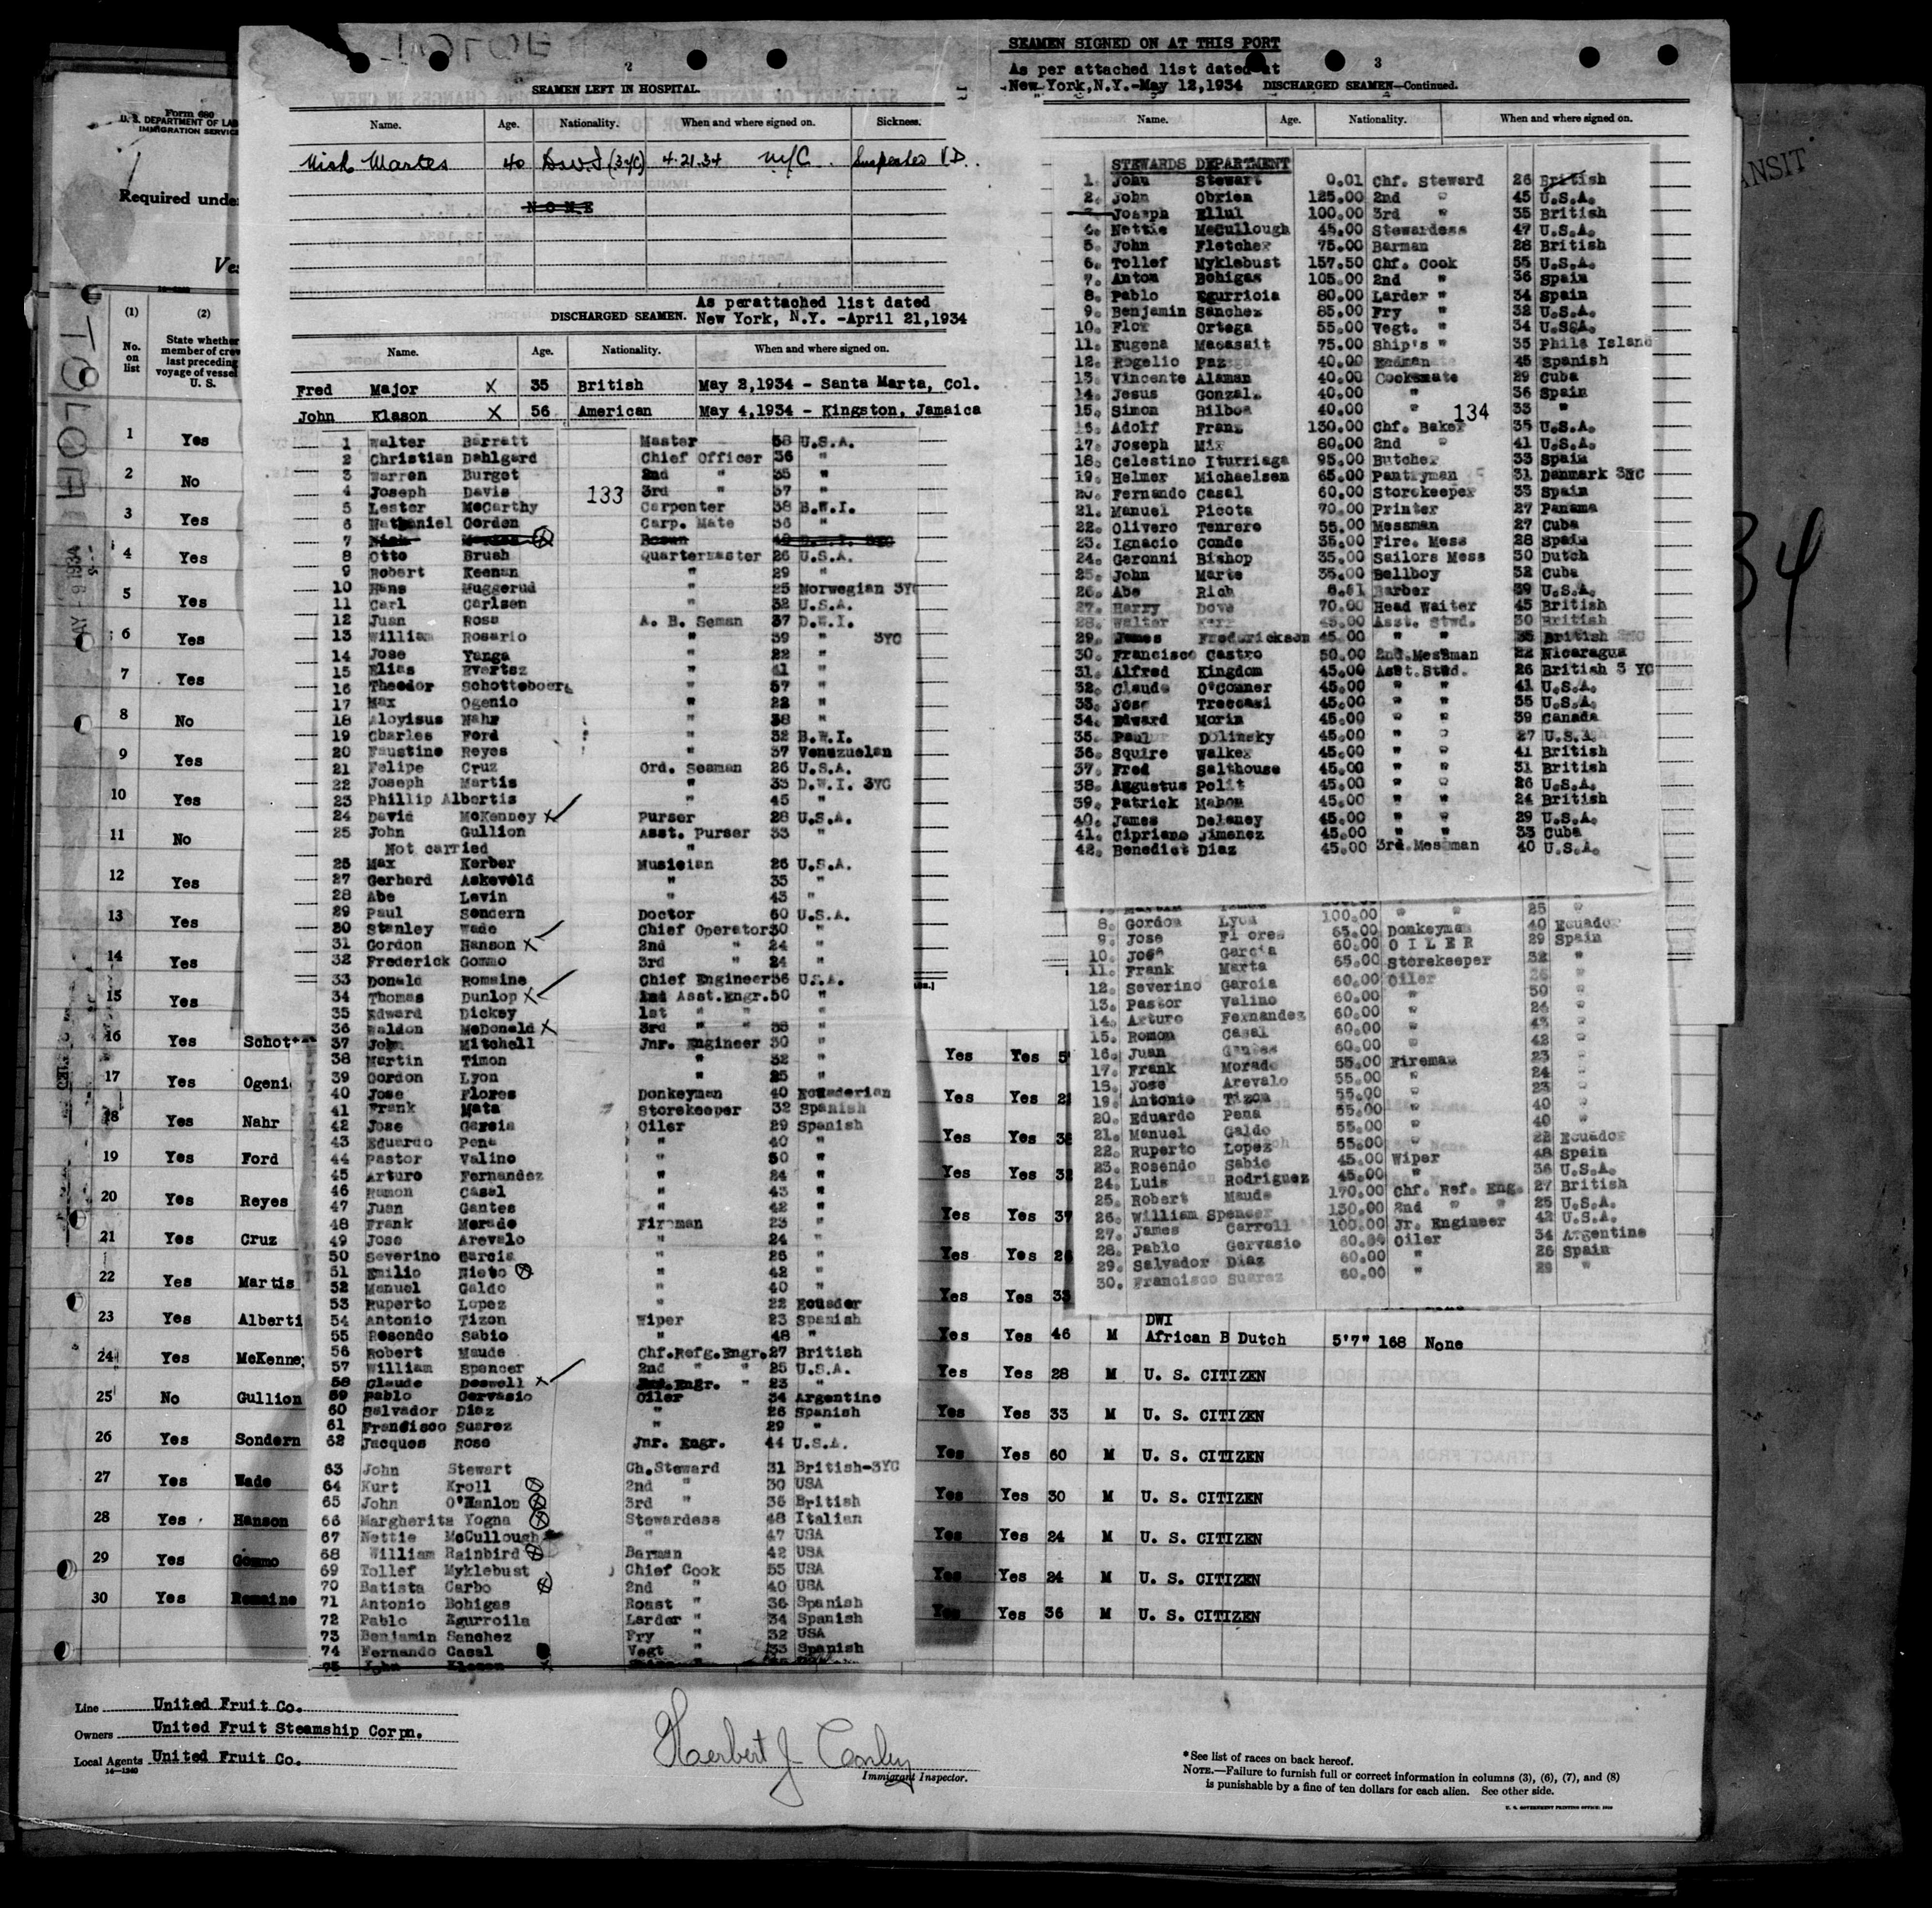 Form 680
U. S. DEPARTMENT OF LAB
IMMIGRATION SERVICE
Required unde
Ves
TOLOA
MAY - 9 1934
(1) (2)
No. on list
State whether member of crew last preceding voyage of vessel U. S.
1 Yes
2 No
3 Yes
4 Yes
5 Yes
6 Yes
7 Yes
8 No
9 Yes
10 Yes
11 No
12 Yes
13 Yes
14 Yes
15 Yes
16 Yes Schott
17 Yes Ogeni
18 Yes Nahr
19 Yes Ford
20 Yes Reyes
21 Yes Cruz
22 Yes Martis
23 Yes Alberti
24 Yes McKenne
25 No Gullion
26 Yes Sondern
27 Yes Wade
28 Yes Hanson
29 Yes Gommo
30 Yes Romaine
2
SEAMEN LEFT IN HOSPITAL.
Name. Age. Nationality. When and where signed on. Sickness.
Nick Martes 40 D.W.I (3yC) 4.21.34 NYC Suspected V.D.
NONE
DISCHARGED SEAMEN. As perattached list dated
New York, N.Y. -April 21,1934
Name. Age. Nationality. When and where signed on.
Fred Major X 35 British May 2,1934 - Santa Marta, Col.
John Klason X 56 American May 4,1934 - Kingston, Jamaica
1 Walter Barrett Master 58 U.S.A.
2 Christian Dahlgard Chief Officer 36 "
3 Warren Burget 2nd " 35 "
4 Joseph Davis 133 3rd " 37 "
5 Lester McCarthy Carpenter 38 B.W.I.
6 Nathaniel Gordon Carp. Mate 36 "
7 Nick Bosun 40 D.W.I. 3YC
8 Otto Brush Quartermaster 26 U.S.A.
9 Robert Keenan " 29 "
10 Hans Muggerud " 25 Norwegian 3YC
11 Carl Carlsen " 32 U.S.A.
12 Juan Rosa A. B. Seman 37 D.W.I.
13 William Rosario " 39 " 3YC
14 Jose Yanga " 22 "
15 Elias Evertsz " 41 "
16 Theodor Schotteboer " 57 "
17 Max Ogenio " 22 "
18 Aloyisus Nahr " 38 "
19 Charles Ford " 32 B.W.I.
20 Faustino Reyes " 37 Venezuelan
21 Felipe Cruz Ord. Seaman 26 U.S.A.
22 Joseph Martis " 33 D.W.I. 3YC
23 Phillip Albertis " 45 "
24 David McKenney X Purser 28 U.S.A.
25 John Gullion Asst. Purser 33 "
Not carried "
25 Max Kerber Musician 26 U.S.A.
27 Gerhard Askeveld " 35 "
28 Abe Levin " 43 "
29 Paul Sondern Doctor 60 U.S.A.
30 Stanley Wade Chief Operator 30 "
31 Gordon Hanson X 2nd " 24 "
32 Frederick Gommo 3rd " 24 "
33 Donald Romaine Chief Engineer 36 U.S.A.
34 Thomas Dunlop X 2nd Asst.Engr. 50 "
35 Edward Dickey 1st " "
36 Waldon McDonald X 3rd " " 38 "
37 John Mitchell Jnr. Engineer 30 "
38 Martin Timon " 32 "
39 Gordon Lyon " 25 "
40 Jose Flores Donkeyman 40 Ecuaderian
41 Frank Mata Storekeeper 32 Spanish
42 Jose Garcia Oiler 29 Spanish
43 Eduardo Pena " 40 "
44 Pastor Valino " 50 "
45 Arturo Fernandez " 24 "
46 Ramon Casal " 43 "
47 Juan Gantes " 42 "
48 Frank Morado Fireman 23 "
49 Jose Arevalo " 24 "
50 Severino Garcia " 26 "
51 Emilio Nieto " 42 "
52 Manuel Galdo " 40 "
53 Ruperto Lopez " 22 Ecuador
54 Antonio Tizon Wiper 23 Spanish
55 Rosendo Sabio " 48 "
56 Robert Maude Chf.Refg.Engr. 27 British
57 William Spencer 2nd " " 25 U.S.A.
58 Claude Doswell X Engr. " 23 "
59 Pablo Gervasio Oiler 34 Argentine
60 Salvador Diaz " 26 Spanish
61 Francisco Suarez " 29 "
62 Jacques Rose Jnr. Engr. 44 U.S.A.
63 John Stewart Ch.Steward 31 British-3YC
64 Kurt Kroll 2nd " 30 USA
65 John O'Hanlon 3rd " 36 British
66 Margherita Yogna Stewardess 48 Italian
67 Nettie McCullough " 47 USA
68 William Rainbird Barman 42 USA
69 Tollef Myklebust Chief Cook 55 USA
70 Batista Carbo 2nd " 40 USA
71 Antonio Bohigas Roast " 36 Spanish
72 Pablo Egurroila Larder " 34 Spanish
73 Benjamin Sanchez Fry " 32 USA
74 Fernando Casal Vegt " 33 Spanish
75 John Klason
SEAMEN SIGNED ON AT THIS PORT
As per attached list dated at
New York,N.Y.-May 12,1934
3
DISCHARGED SEAMEN—Continued.
Name. Age. Nationality. When and where signed on.
STEWARDS DEPARTMENT
1. John Stewart 0.01 Chf. Steward 26 British
2. John Obrien 125.00 2nd " 45 U.S.A.
Joseph Ellul 100.00 3rd " 35 British
4. Nettie McCullough 45.00 Stewardess 47 U.S.A.
5. John Fletcher 75.00 Barman 28 British
6. Tollef Myklebust 157.50 Chf. Cook 55 U.S.A.
7. Anton Bohigas 105.00 2nd " 36 Spain
8. Pablo Egurricia 80.00 Larder " 34 Spain
9. Benjamin Sanchez 85.00 Fry " 32 U.S.A.
10. Flor Ortega 55.00 Vegt. " 34 U.SGA.
11. Eugena Macasait 75.00 Ship's " 35 Phila Island
12. Rogelio Paz 40.00 45 Spanish
13. Vincente Alaman 40.00 Cooksmate 29 Cuba
14. Jesus Gonzal. 40.00 " 36 Spain
15. Simon Bilboa 40.00 " 134 33 "
16. Adolf Franz 130.00 Chf. Baker 35 U.S.A.
17. Joseph Mix 80.00 2nd " 41 U.S.A.
18. Celestino Iturriaga 95.00 Butcher 33 Spain
19. Helmer Michaelsen 65.00 Pantryman 31 Danmark 3YC
20. Fernando Casal 60.00 Storekeeper 33 Spain
21. Manuel Picota 70.00 Printer 27 Panama
22. Olivero Tenrero 55.00 Messman 27 Cuba
23. Ignacio Conde 35.00 Fire. Mess 28 Spain
24. Geronni Bishop 35.00 Sailors Mess 30 Dutch
25. John Marte 35.00 Bellboy 32 Cuba
26. Abe Rich 0.01 Barber 39 U.S.A.
27. Harry Dove 70.00 Head Waiter 45 British
28. Walter Kerr 45.00 Asst. Stwd. 30 British
29. James Frederickson 45.00 " " 35 British 3YC
30. Francisco Castro 50.00 2nd.Messman 22 Nicaragua
31. Alfred Kingdom 45.00 Asst.Stwd. 26 British 3 YC
32. Claude O'Conner 45.00 " " 41 U.S.A.
33. Jose Treccasi 45.00 " " 35 U.S.A.
34. Edward Morin 45.00 " " 39 Canada
35. Paul Dolinsky 45.00 " " 27 U.S.A
36. Squire Walker 45.00 " " 41 British
37. Fred Salthouse 45.00 " " 31 British
38. Augustus Polit 45.00 " " 26 U.S.A.
39. Patrick Mahon 45.00 " " 24 British
40. James Delaney 45.00 " " 29 U.S.A.
41. Cipriano Jimenez 45.00 " " 33 Cuba
42. Benedict Diaz 45.00 3rd.Messman 40 U.S.A.
100.00 " " 25 "
8. Gordon Lyon 65.00 Donkeyman 40 Ecuador
9. Jose Flores 60.00 OILER 29 Spain
10. Jose Garcia 65.00 Storekeeper 32 "
11. Frank Marta 60.00 Oiler 26 "
12. Severino Garcia 60.00 " 50 "
13. Pastor Valino 60.00 " 24 "
14. Arturo Fernandez 60.00 " 43 "
15. Romon Casal 60.00 " 42 "
16. Juan Gantes 55.00 Fireman 23 "
17. Frank Morado 55.00 " 24 "
18. Jose Arevalo 55.00 " 23 "
19. Antonio Tizon 55.00 " 40 "
20. Eduardo Pena 55.00 " 40 "
21. Manuel Galdo 55.00 " 22 Ecuador
22. Ruperto Lopez 45.00 Wiper 48 Spain
23. Rosendo Sabio 45.00 " 36 U.S.A.
24. Luis Rodriguez 170.00 Chf. Ref. Eng. 27 British
25. Robert Maude 130.00 2nd " " 25 U.S.A.
26. William Spencer 100.00 Jr. Engineer 42 U.S.A.
27. James Carroll 60.00 Oiler 34 Argentine
28. Pablo Gervasio 60.00 " 26 Spain
29. Salvador Diaz 60.00 " 29 "
30. Francisco Suarez
Yes Yes 5
Yes Yes 2
Yes Yes 3
Yes Yes 3
Yes Yes 37
Yes Yes 26
Yes Yes 33
Yes Yes 46 M DWI African B Dutch 5'7" 168 None
Yes Yes 28 M U. S. CITIZEN
Yes Yes 33 M U. S. CITIZEN
Yes Yes 60 M U. S. CITIZEN
Yes Yes 30 M U. S. CITIZEN
Yes Yes 24 M U. S. CITIZEN
Yes Yes 24 M U. S. CITIZEN
Yes Yes 36 M U. S. CITIZEN
ANSIT
34
Line United Fruit Co.
Owners United Fruit Steamship Corpn.
Local Agents United Fruit Co.
14—1240
Herbert J Conley
Immigrant Inspector.
*See list of races on back hereof.
NOTE.—Failure to furnish full or correct information in columns (3), (6), (7), and (8)
is punishable by a fine of ten dollars for each alien. See other side.
U. S. GOVERNMENT PRINTING OFFICE